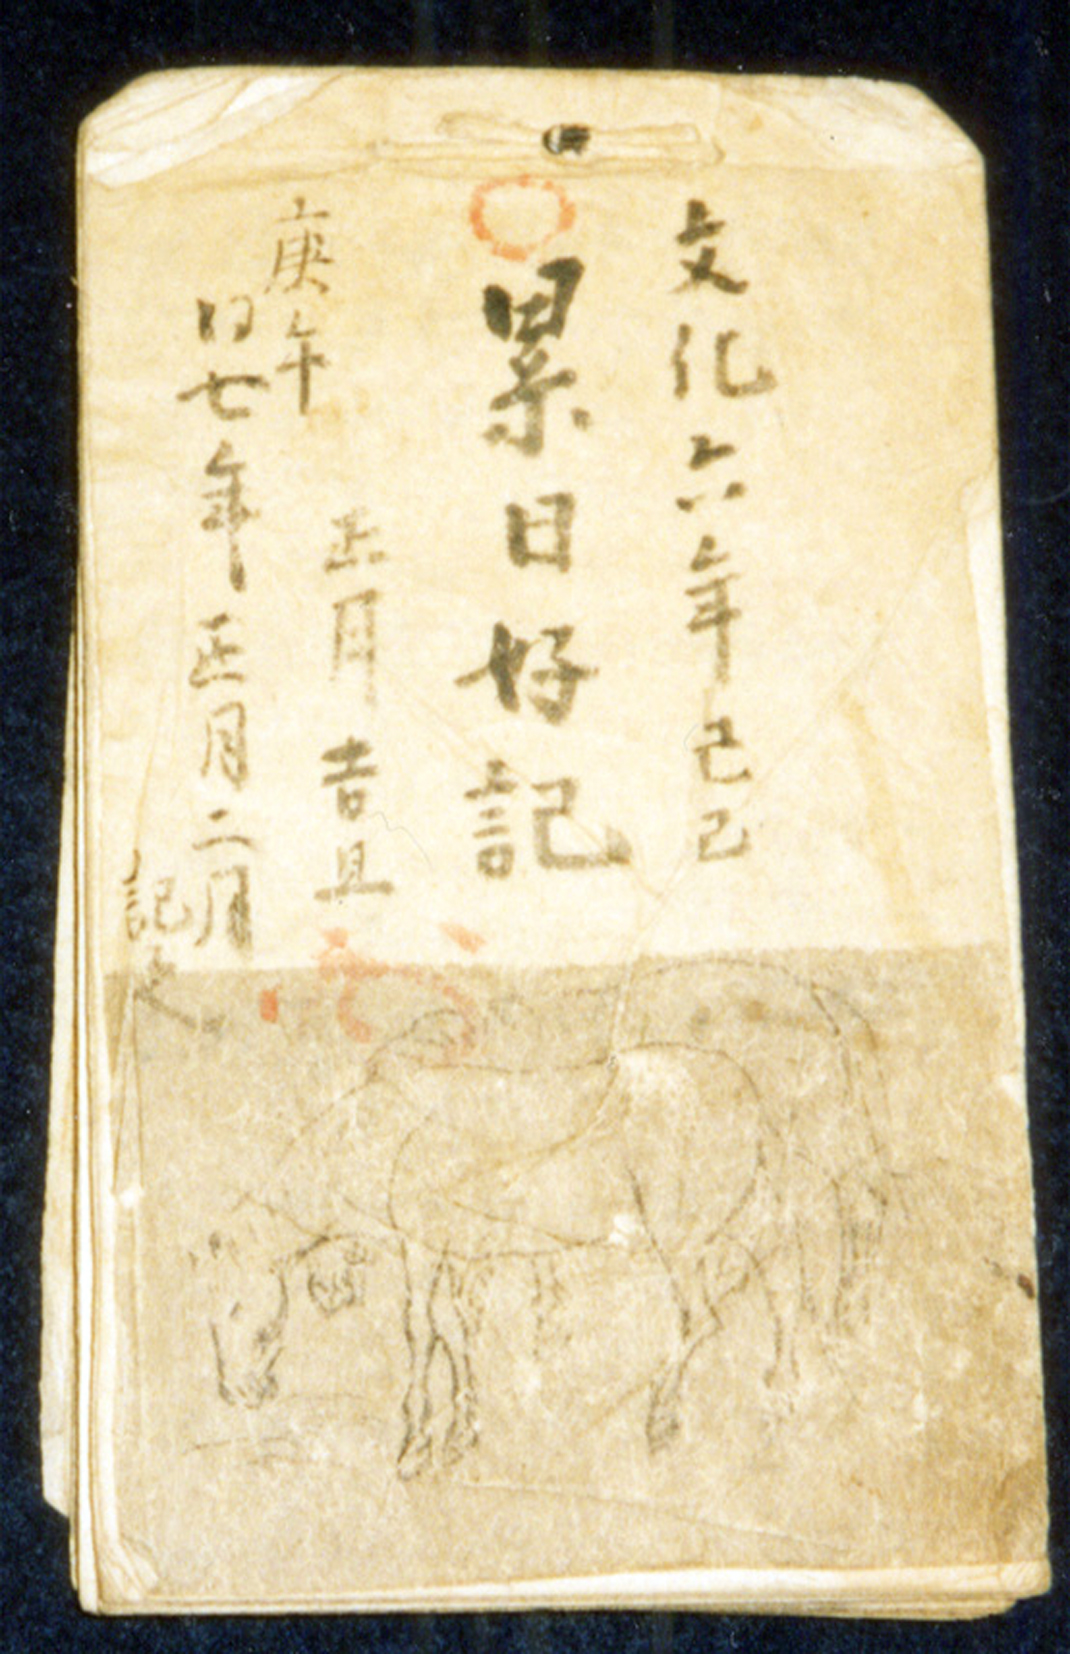 文化六年己巳
累日好記
正月吉旦
庚午
同七年正月二月
記之